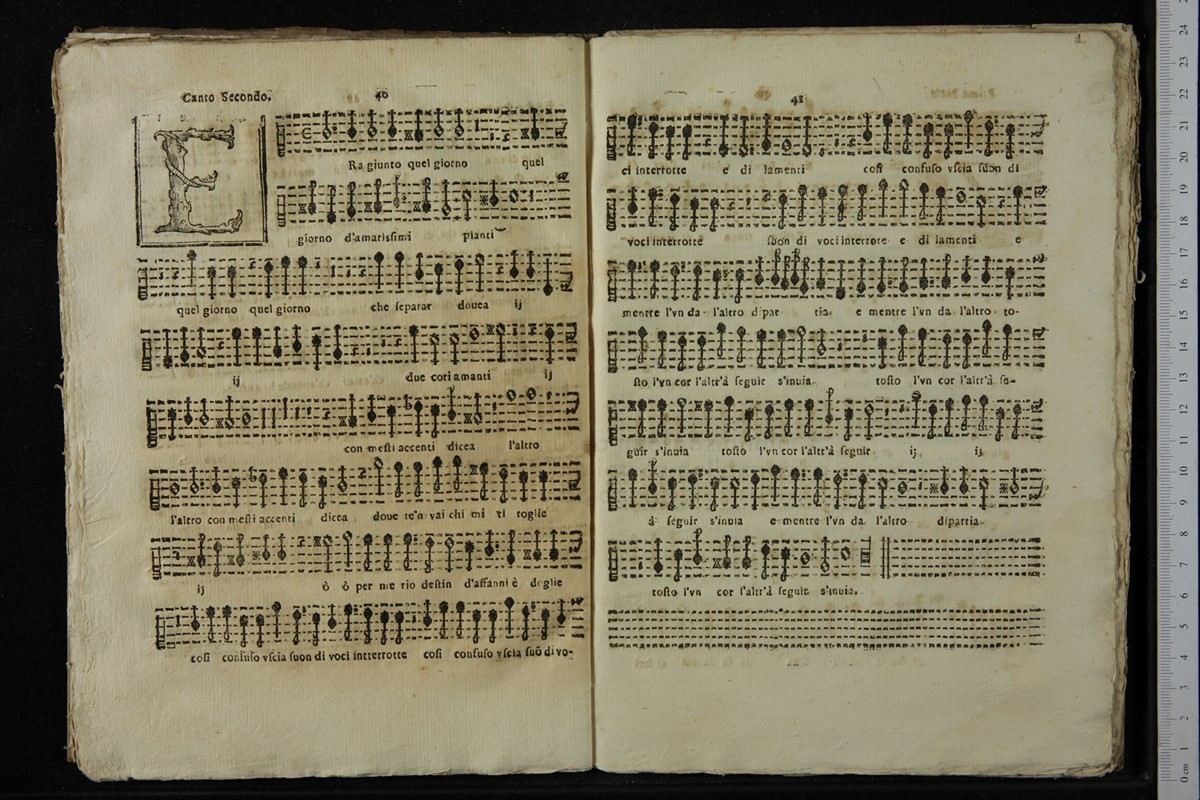 Canto Secondo.
40
E
Ra giunto quel giorno quel
giorno d'amarissimi pianti
quel giorno quel giorno che separar douea ij
ij due cori amanti ij
con mesti accenti dicea l'altro
l'altro con mesti accenti dicea doue te'n vai chi mi ti toglie
ij ò ò per me rio destin d'affanni è doglie
così confuso vscia suon di voci intterrotte così confuso vscia suõ di vo-
41
ci interrotte e di lamenti così confuso vscia suon di
voci interrotte suon di voci interrote e di lamenti e
mentre l'vn da l'altro dipar tia e mentre l'vn da l'altro to-
sto l'vn cor l'altr'à seguir s'inuia tosto l'vn cor l'altr'à se-
guir s'inuia tosto l'vn cor l'altr'à seguir ij ij
à seguir s'inuia e mentre l'vn da l'altro dipartia
tosto l'vn cor l'altr'à seguir s'inuia.